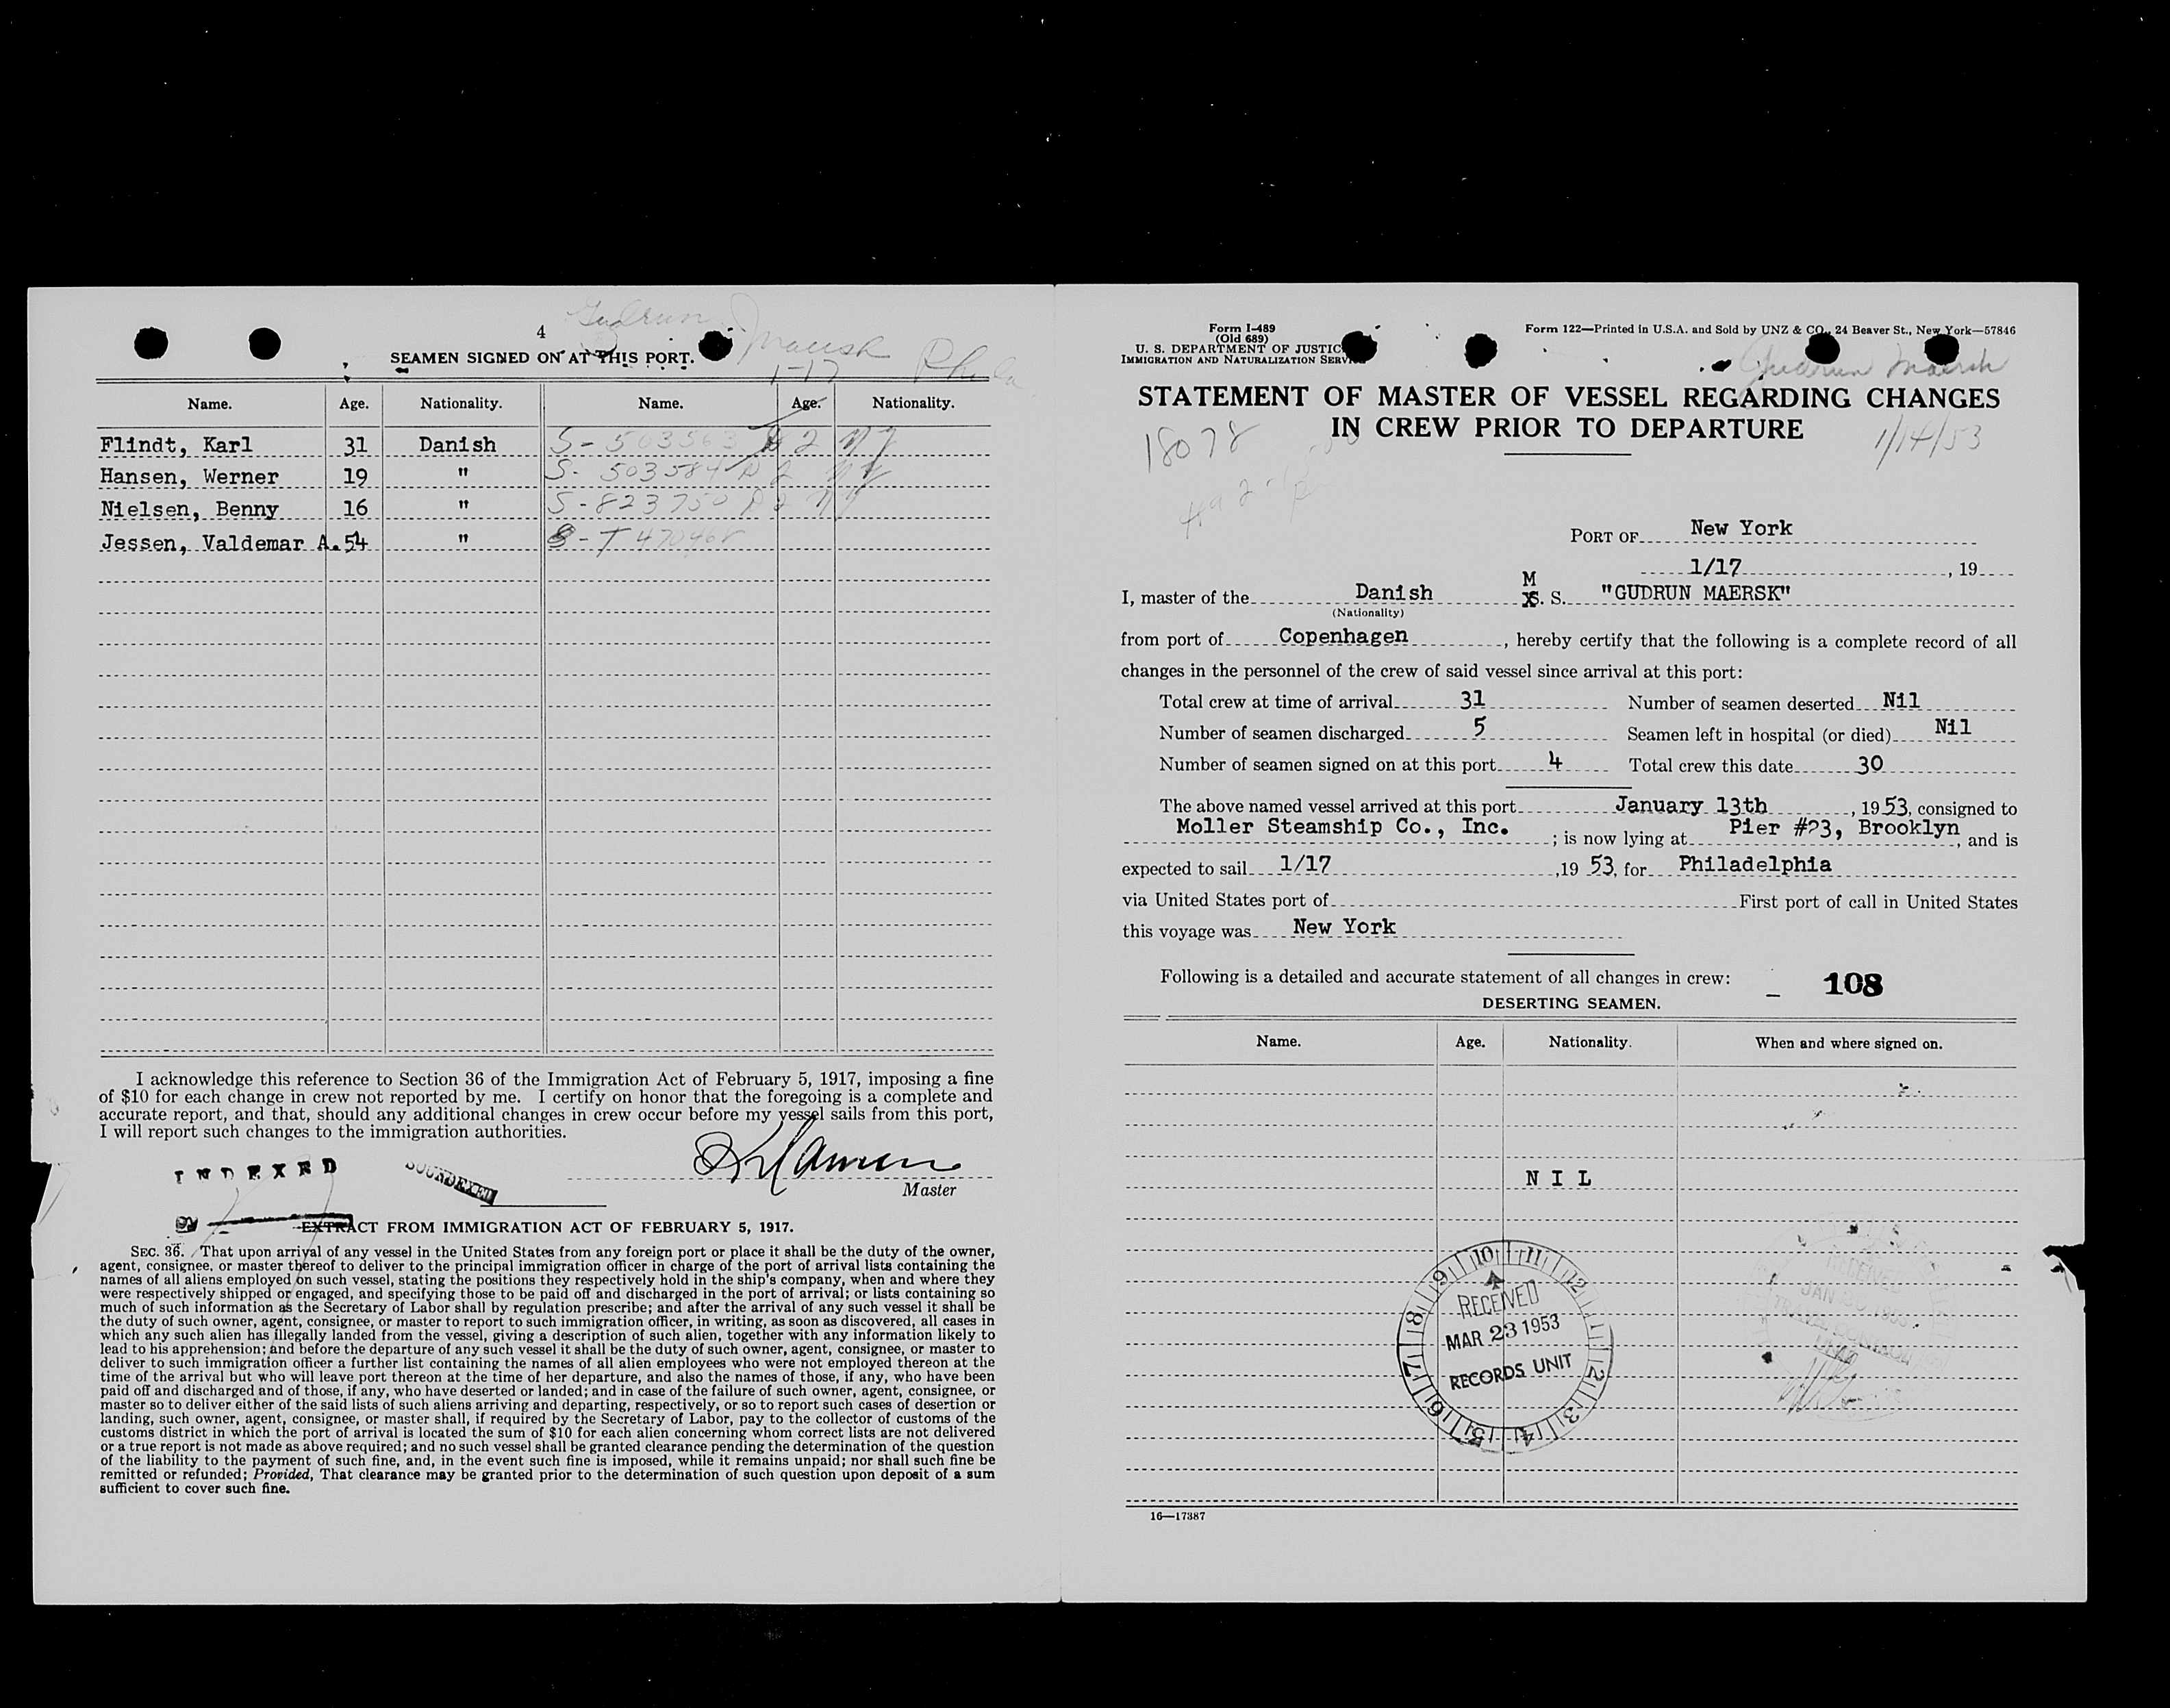 4
Gudrun Maersk
1-17 Phila
SEAMEN SIGNED ON AT THIS PORT.
Name. Age. Nationality. Name. Age. Nationality.
Flindt, Karl 31 Danish S- 503563 NY
Hansen, Werner 19 " S- 503584 NY
Nielsen, Benny 16 " S-823750 NY
Jessen, Valdemar A. 54 "
I acknowledge this reference to Section 36 of the Immigration Act of February 5, 1917, imposing a fine
of $10 for each change in crew not reported by me. I certify on honor that the foregoing is a complete and
accurate report, and that, should any additional changes in crew occur before my vessel sails from this port,
I will report such changes to the immigration authorities.
INDEXED
SOUNDEXED
Master
EXTRACT FROM IMMIGRATION ACT OF FEBRUARY 5, 1917.
SEC. 36. That upon arrival of any vessel in the United States from any foreign port or place it shall be the duty of the owner,
agent, consignee, or master thereof to deliver to the principal immigration officer in charge of the port of arrival lists containing the
names of all aliens employed on such vessel, stating the positions they respectively hold in the ship's company, when and where they
were respectively shipped or engaged, and specifying those to be paid off and discharged in the port of arrival; or lists containing so
much of such information as the Secretary of Labor shall by regulation prescribe; and after the arrival of any such vessel it shall be
the duty of such owner, agent, consignee, or master to report to such immigration officer, in writing, as soon as discovered, all cases in
which any such alien has illegally landed from the vessel, giving a description of such alien, together with any information likely to
lead to his apprehension; and before the departure of any such vessel it shall be the duty of such owner, agent, consignee, or master to
deliver to such immigration officer a further list containing the names of all alien employees who were not employed thereon at the
time of the arrival but who will leave port thereon at the time of her departure, and also the names of those, if any, who have been
paid off and discharged and of those, if any, who have deserted or landed; and in case of the failure of such owner, agent, consignee, or
master so to deliver either of the said lists of such aliens arriving and departing, respectively, or so to report such cases of desertion or
landing, such owner, agent, consignee, or master shall, if required by the Secretary of Labor, pay to the collector of customs of the
customs district in which the port of arrival is located the sum of $10 for each alien concerning whom correct lists are not delivered
or a true report is not made as above required; and no such vessel shall be granted clearance pending the determination of the question
of the liability to the payment of such fine, and, in the event such fine is imposed, while it remains unpaid; nor shall such fine be
remitted or refunded; Provided, That clearance may be granted prior to the determination of such question upon deposit of a sum
sufficient to cover such fine.
Form I-489
(Old 689)
U. S. DEPARTMENT OF JUSTIC
IMMIGRATION AND NATURALIZATION SERVICE
Form 122—Printed in U.S.A. and Sold by UNZ & CO., 24 Beaver St., New York—57846
Gudrun Maersk
STATEMENT OF MASTER OF VESSEL REGARDING CHANGES
IN CREW PRIOR TO DEPARTURE
18078
1/14/53
PORT OF New York
1/17, 19
I, master of the Danish M S. S. "GUDRUN MAERSK"
(Nationality)
from port of Copenhagen, hereby certify that the following is a complete record of all
changes in the personnel of the crew of said vessel since arrival at this port:
Total crew at time of arrival 31 Number of seamen deserted Nil
Number of seamen discharged 5 Seamen left in hospital (or died) Nil
Number of seamen signed on at this port 4 Total crew this date 30
The above named vessel arrived at this port January 13th, 1953, consigned to
Moller Steamship Co., Inc.; is now lying at Pier #23, Brooklyn, and is
expected to sail 1/17, 19 53, for Philadelphia
via United States port of First port of call in United States
this voyage was New York
Following is a detailed and accurate statement of all changes in crew: 108
DESERTING SEAMEN.
Name. Age. Nationality. When and where signed on.
NIL
10 11 12 1 2 3 4 5 6 7 8 9
RECEIVED
MAR 23 1953
RECORDS UNIT
RECEIVED
16—17387